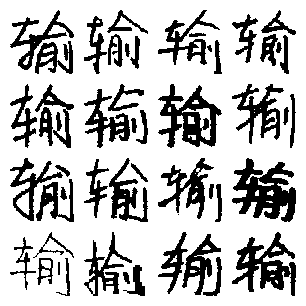 输输输输
输输输输
输输输输
输输输输